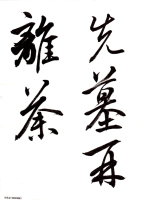 先墓再
離茶